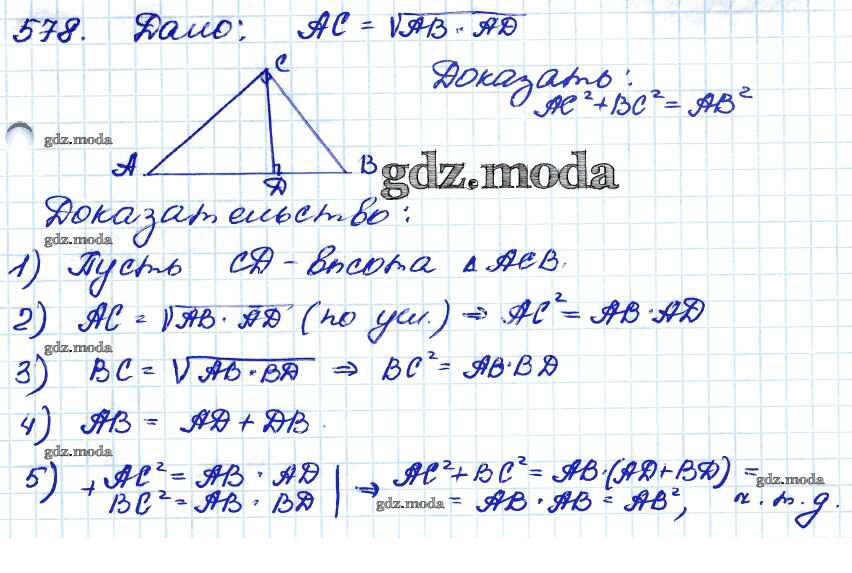 578. Дано: AC = √AB · AD
Доказать:
AC² + BC² = AB²
C
gdz.moda
A
B
D
gdz.moda
Доказательство:
gdz.moda
1) Пусть CD - высота △ACB.
2) AC = √AB · AD (по усл.) ⇒ AC² = AB · AD
gdz.moda
3) BC = √AB · BD ⇒ BC² = AB · BD
4) AB = AD + DB.
gdz.moda
5) + AC² = AB · AD | ⇒ AC² + BC² = AB · (AD + BD) =
gdz.moda
BC² = AB · BD | = AB · AB = AB², ч. т. д.
gdz.moda
gdz.moda